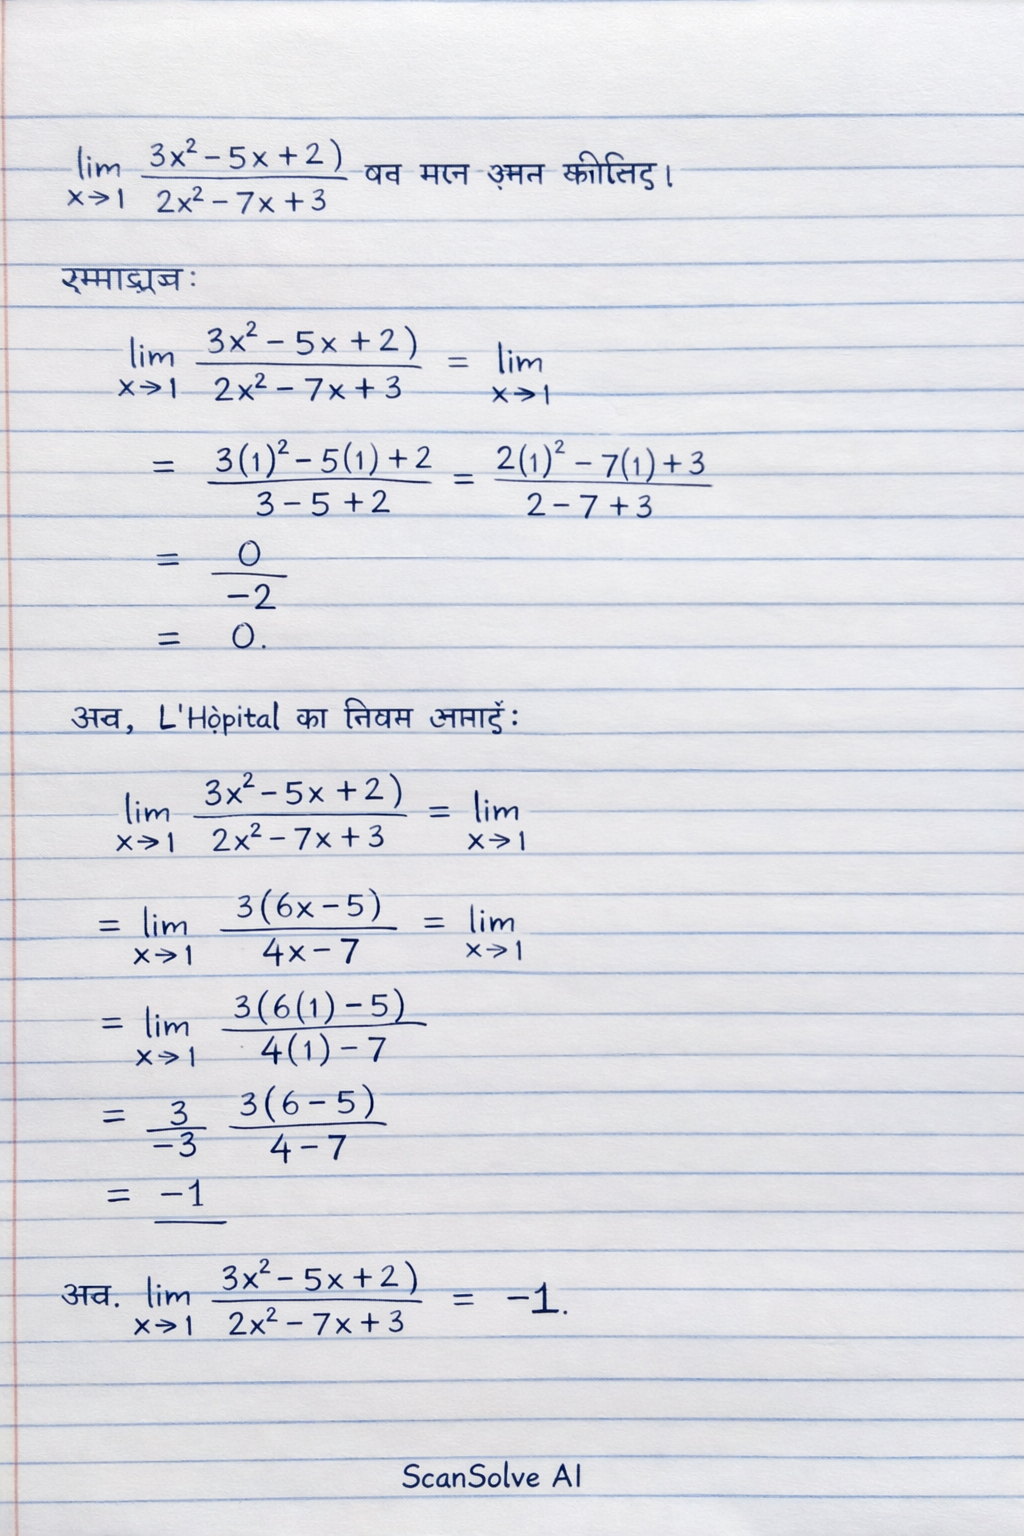 lim x→1 (3x² − 5x + 2) / 2x² − 7x + 3
lim x→1 3x² − 5x + 2) / 2x² − 7x + 3 = lim x→1
= 3(1)² − 5(1) + 2 / 3 − 5 + 2 = 2(1)² − 7(1) + 3 / 2 − 7 + 3
= 0 / −2
= 0.
अव, L'Hòpital का नियम
lim x→1 3x² − 5x + 2) / 2x² − 7x + 3 = lim x→1
= lim x→1 3(6x − 5) / 4x − 7 = lim x→1
= lim x→1 3(6(1) − 5) / 4(1) − 7
= 3 / −3 3(6 − 5) / 4 − 7
= −1
अव. lim x→1 3x² − 5x + 2) / 2x² − 7x + 3 = −1.
ScanSolve AI